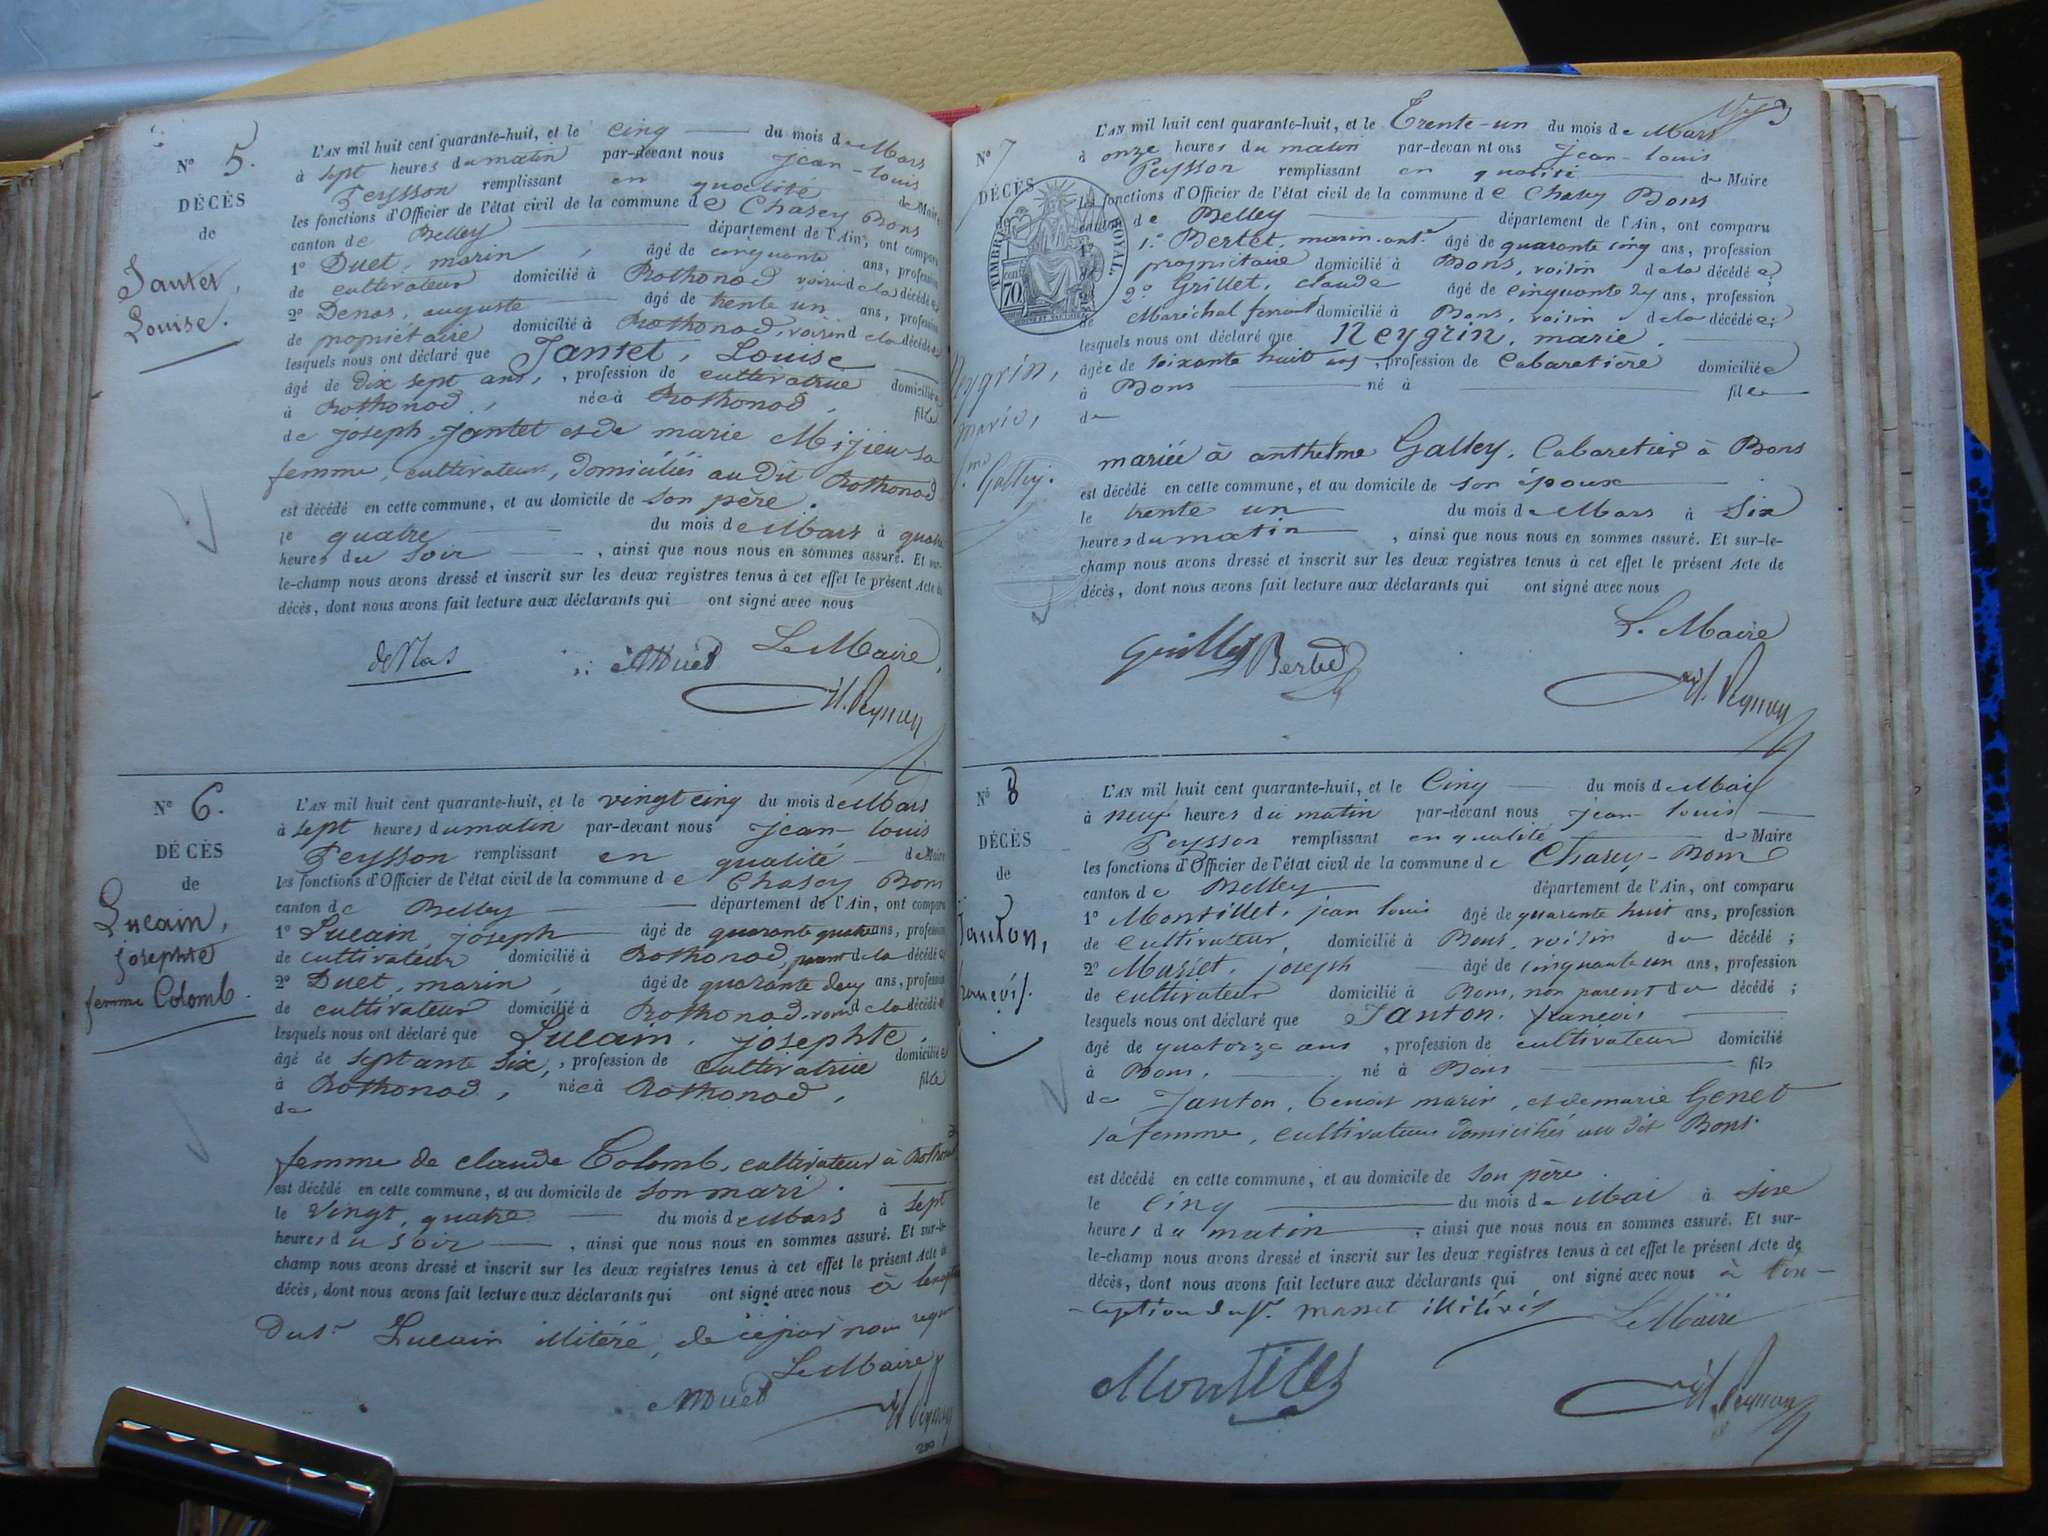 N° 5.
DÉCÈS
de
Jantet,
Louise.
L'AN mil huit cent quarante-huit, et le cinq du mois de Mars
à sept heures du matin par-devant nous jean-louis
Peysson remplissant en qualité de Maire
les fonctions d'Officier de l'état civil de la commune de Chasey Bons
canton de Belley département de l'Ain, ont comparu
1° Duet, marin, âgé de cinquante ans, profession
de cultivateur domicilié à Rothonod voisin de la décédée
2° Denas, auguste âgé de trente un ans, profession
de propiétaire domicilié à Rothonod, voisin de la décédée
lesquels nous ont déclaré que Jantet, Louise
âgé de dix sept ans, , profession de cultivatrice domiciliée
à Rothonod, née à Rothonod, fille
de joseph Jantet et de marie Mijieu sa
femme, cultivateurs, domiciliés au dit Rothonod
est décédé en cette commune, et au domicile de son père.
le quatre du mois de Mars à quatre
heures du soir , ainsi que nous nous en sommes assuré. Et sur-
le-champ nous avons dressé et inscrit sur les deux registres tenus à cet effet le présent Acte de
décès, dont nous avons fait lecture aux déclarants qui ont signé avec nous
Le Maire,
deNas MDuet
N° 6.
DÉCÈS
de
Lucain,
josephte
femme Colomb.
L'AN mil huit cent quarante-huit, et le vingt cinq du mois de Mars
à sept heures du matin par-devant nous jean-louis
Peysson remplissant en qualité de Maire
les fonctions d'Officier de l'état civil de la commune de Chasey Bons
canton de Belley département de l'Ain, ont comparu
1° Lucain, joseph âgé de quarante quatre ans, profession
de cultivateur domicilié à Rothonod, parent de la décédée
2° Duet, marin, âgé de quarante deux ans, profession
de cultivateur domicilié à Rothonod, voisin de la décédée
lesquels nous ont déclaré que Lucain, josephte,
âgé de septante six, , profession de cultivatrice domiciliée
à Rothonod, née à Rothonod, fille
de
femme de claude Colomb, cultivateur à Rothonod
est décédé en cette commune, et au domicile de son mari.
le vingt, quatre du mois de Mars à sept
heures du soir , ainsi que nous nous en sommes assuré. Et sur-le-
champ nous avons dressé et inscrit sur les deux registres tenus à cet effet le présent Acte de
décès, dont nous avons fait lecture aux déclarants qui ont signé avec nous à lexception
Du sr Lucain illitéré, de ce par nous requis
Le Maire
MDuet
220
N° 7
DÉCÈS
TIMBRE ROYAL.
70
Neygrin,
marie,
fme Galley.
L'AN mil huit cent quarante-huit, et le Trente-un du mois de Mars
à onze heures du matin par-devan nt ous jean-louis
Peysson remplissant en qualité de Maire
les fonctions d'Officier de l'état civil de la commune de Chasey Bons
canton de Belley département de l'Ain, ont comparu
1° Bertet, marin-ant. âgé de quarante cinq ans, profession
propriétaire domicilié à Bons, voisin de la décédée;
2° Grillet, claude âgé de cinquante six ans, profession
de Maréchal ferrant domicilié à Bons, voisin de la décédée;
lesquels nous ont déclaré que Neygrin, marie,
âgée de soixante huit ans, profession de Cabaretière domiciliée
à Bons né à fille
de
mariée à anthelme Galley, Cabaretier à Bons
est décédé en cette commune, et au domicile de son époux
le trente un du mois de Mars à six
heures du matin , ainsi que nous nous en sommes assuré. Et sur-le-
champ nous avons dressé et inscrit sur les deux registres tenus à cet effet le présent Acte de
décès, dont nous avons fait lecture aux déclarants qui ont signé avec nous
Le Maire
N° 8
DÉCÈS
de
Janton,
francois.
L'AN mil huit cent quarante-huit, et le Cinq du mois de Mai
à neuf heures du matin par-devant nous jean-louis
Peysson remplissant en qualité de Maire
les fonctions d'Officier de l'état civil de la commune de Chasey-Bons
canton de Belley département de l'Ain, ont comparu
1° Montillet, jean louis âgé de quarante huit ans, profession
de cultivateur, domicilié à Bons, voisin du décédé;
2° Masset, joseph âgé de cinquante un ans, profession
de cultivateur domicilié à Bons, non parent du décédé;
lesquels nous ont déclaré que Janton, francois
âgé de quatorze ans , profession de cultivateur domicilié
à Bons. né à Bons fils
de Janton, benoit marin, et de marie Genet
sa femme, cultivateurs domiciliés au dit Bons.
est décédé en cette commune, et au domicile de son père
le cinq du mois de Mai à six
heures du matin , ainsi que nous nous en sommes assuré. Et sur-
le-champ nous avons dressé et inscrit sur les deux registres tenus à cet effet le présent Acte de
décès, dont nous avons fait lecture aux déclarants qui ont signé avec nous à l'ex-
ception du sr. masset illitéré
Le Maire
Montillet